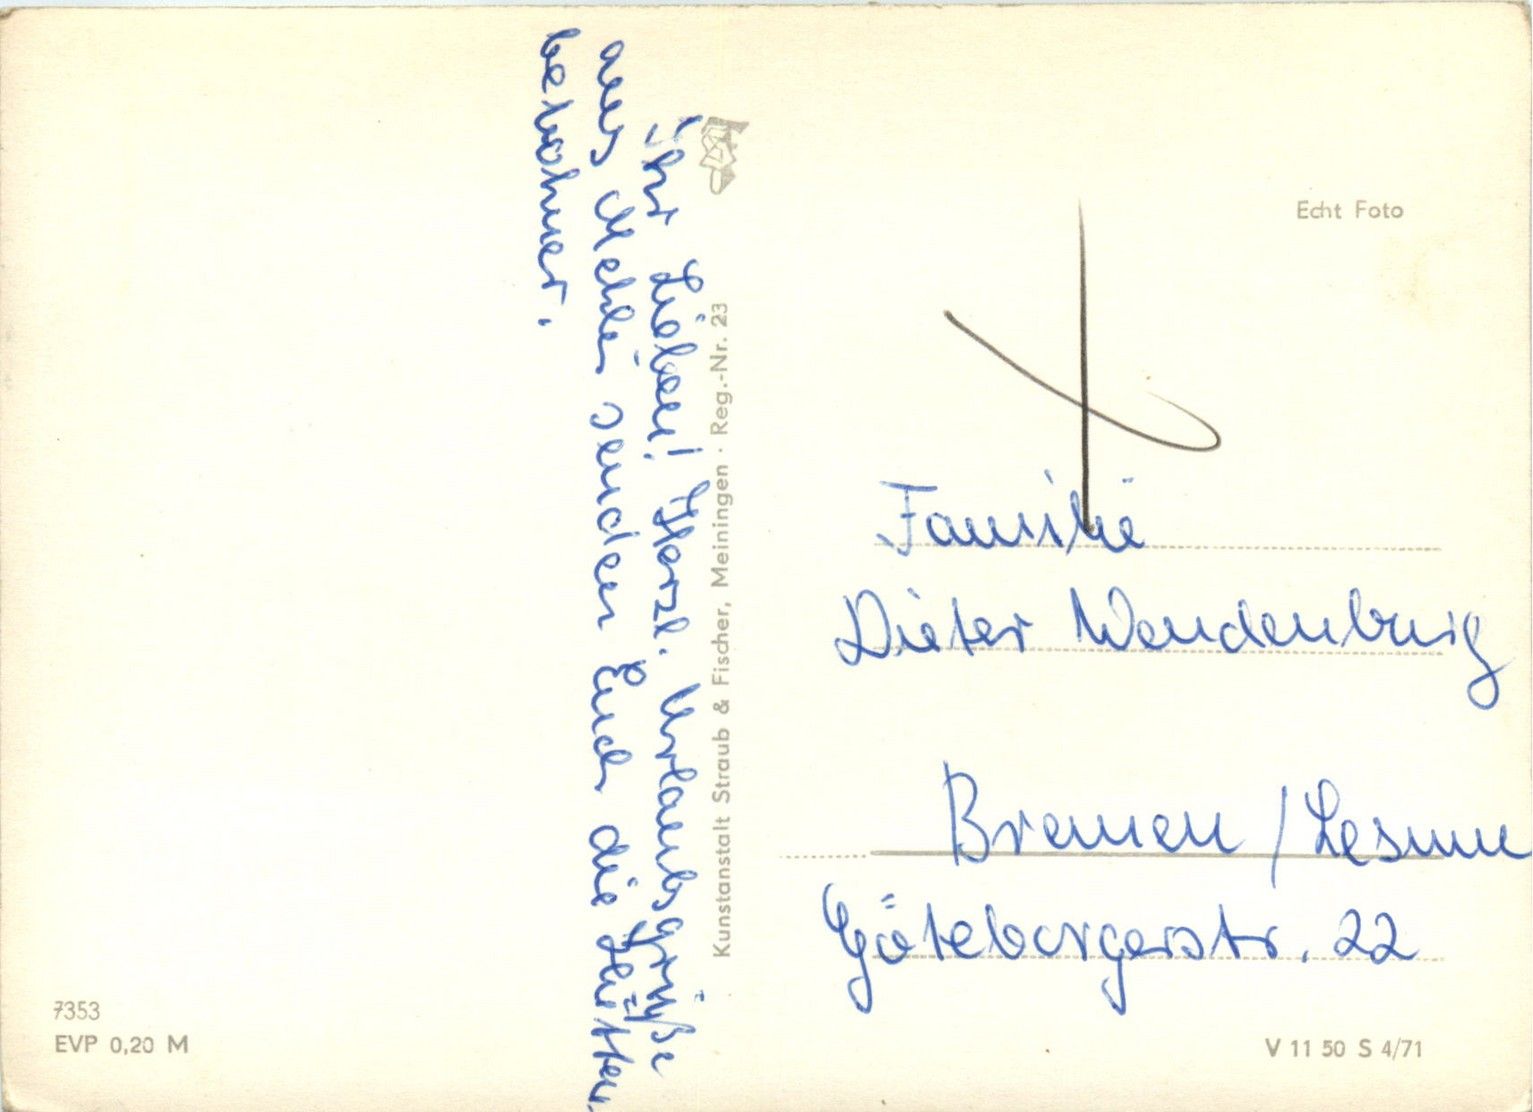 Ihr Lieben! Herzl. Urlaubsgrüße
aus Mehlis senden Euch die Hütten
bewohner.
Kunstanstalt Straub & Fischer, Meiningen · Reg.-Nr. 23
7353
EVP 0,20 M
Echt Foto
Familie
Dieter Wendenburg
Bremen / Lesum
Göteborgerstr. 22
V 11 50 S 4/71